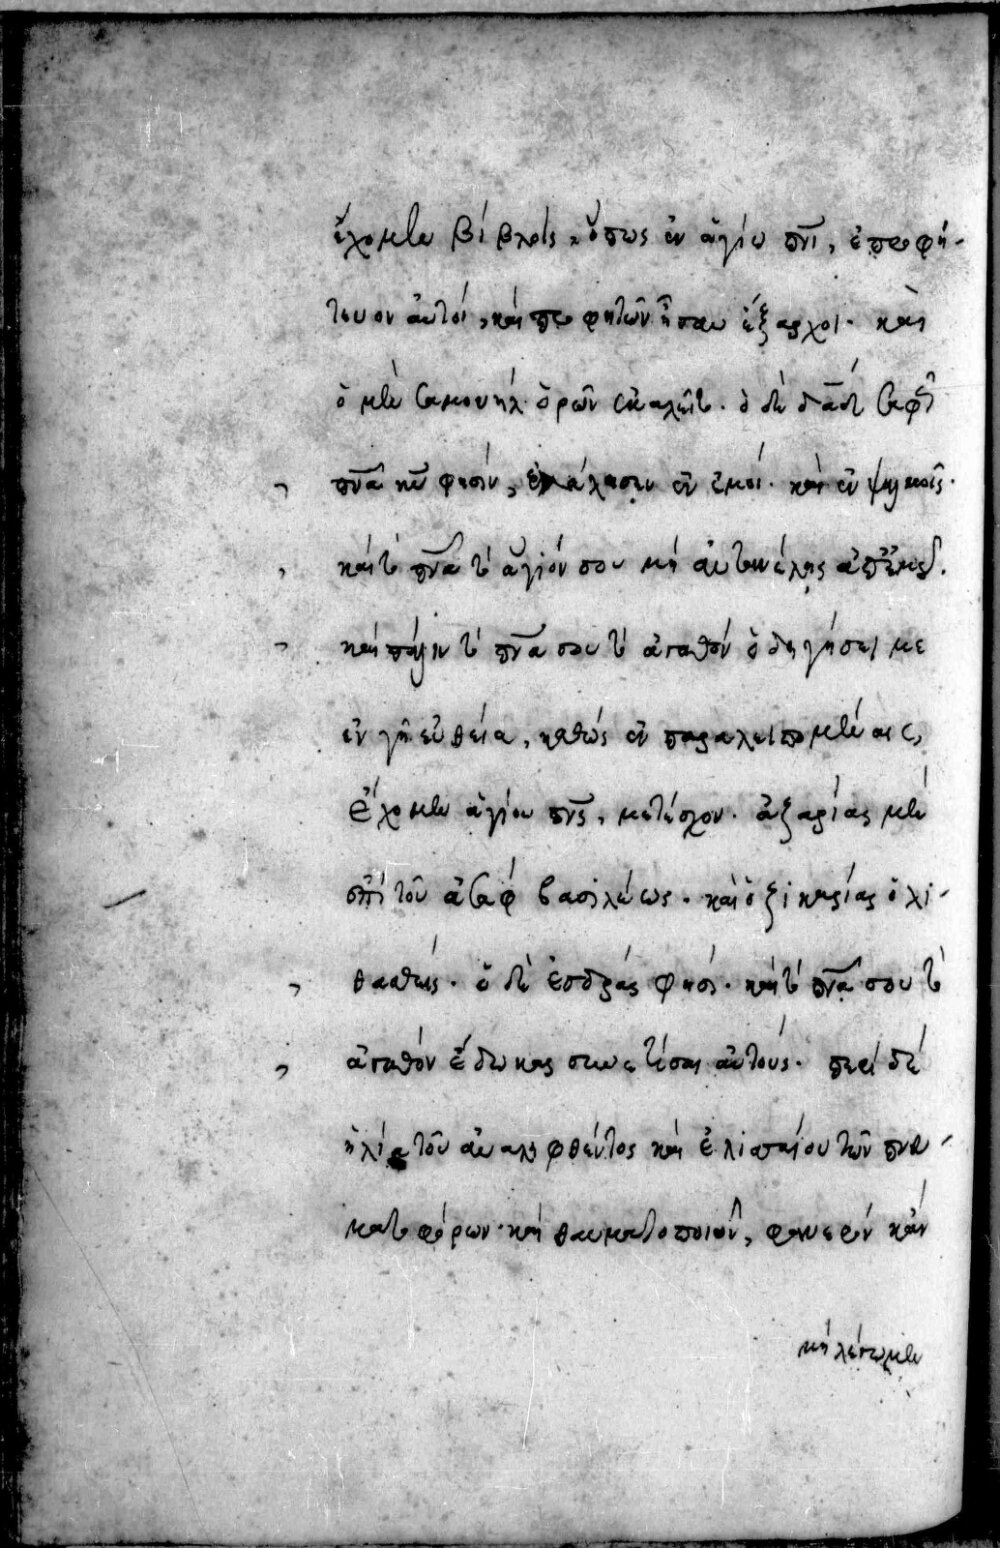 ἔχομεν βίβλοις, ὅπως ἐν ἁγίω πνι, ἐπροφή-
τευον αὐτοὶ, καὶ προφητῶν ἦσαν ἔξαρχοι. καὶ
ὁ μὲν σαμουὴλ ὁρῶν ἐκαλεῖτο. ὁ δὲ δαδ σαφῶς
πνα κυ φησὶν, ἐλάλησεν ἐν ἐμοί. καὶ ἐν ψαλμοῖς.
καὶ τὸ πνα τὸ ἅγιόν σου μὴ ἀντανέλης ἀπ' ἐμοῦ.
καὶ πάλιν τὸ πνα σου τὸ ἀγαθὸν ὁδηγήσει με
ἐν γῆ εὐθεία, καθὼς ἐν παραλειπομέναις,
ἔχομεν ἁγίου πνς, μετέσχον. ἀζαρίας μὲν
ἐπὶ τοῦ ἀσαφ βασιλέως. καὶ ὀζι καρίας ὁ λι-
θασθείς. ὁ δὲ ἔσδρας φησί. καὶ τὸ πνα σου τὸ
ἀγαθὸν ἔδωκας συνετίσαι αὐτούς. περὶ δὲ
ἠλία τοῦ ἀναληφθέντος καὶ ἐλισσαίου τῶν πνευ-
ματοφόρων καὶ θαυματοποιῶν, φανερὸν κἂν
μὴ λέγωμεν